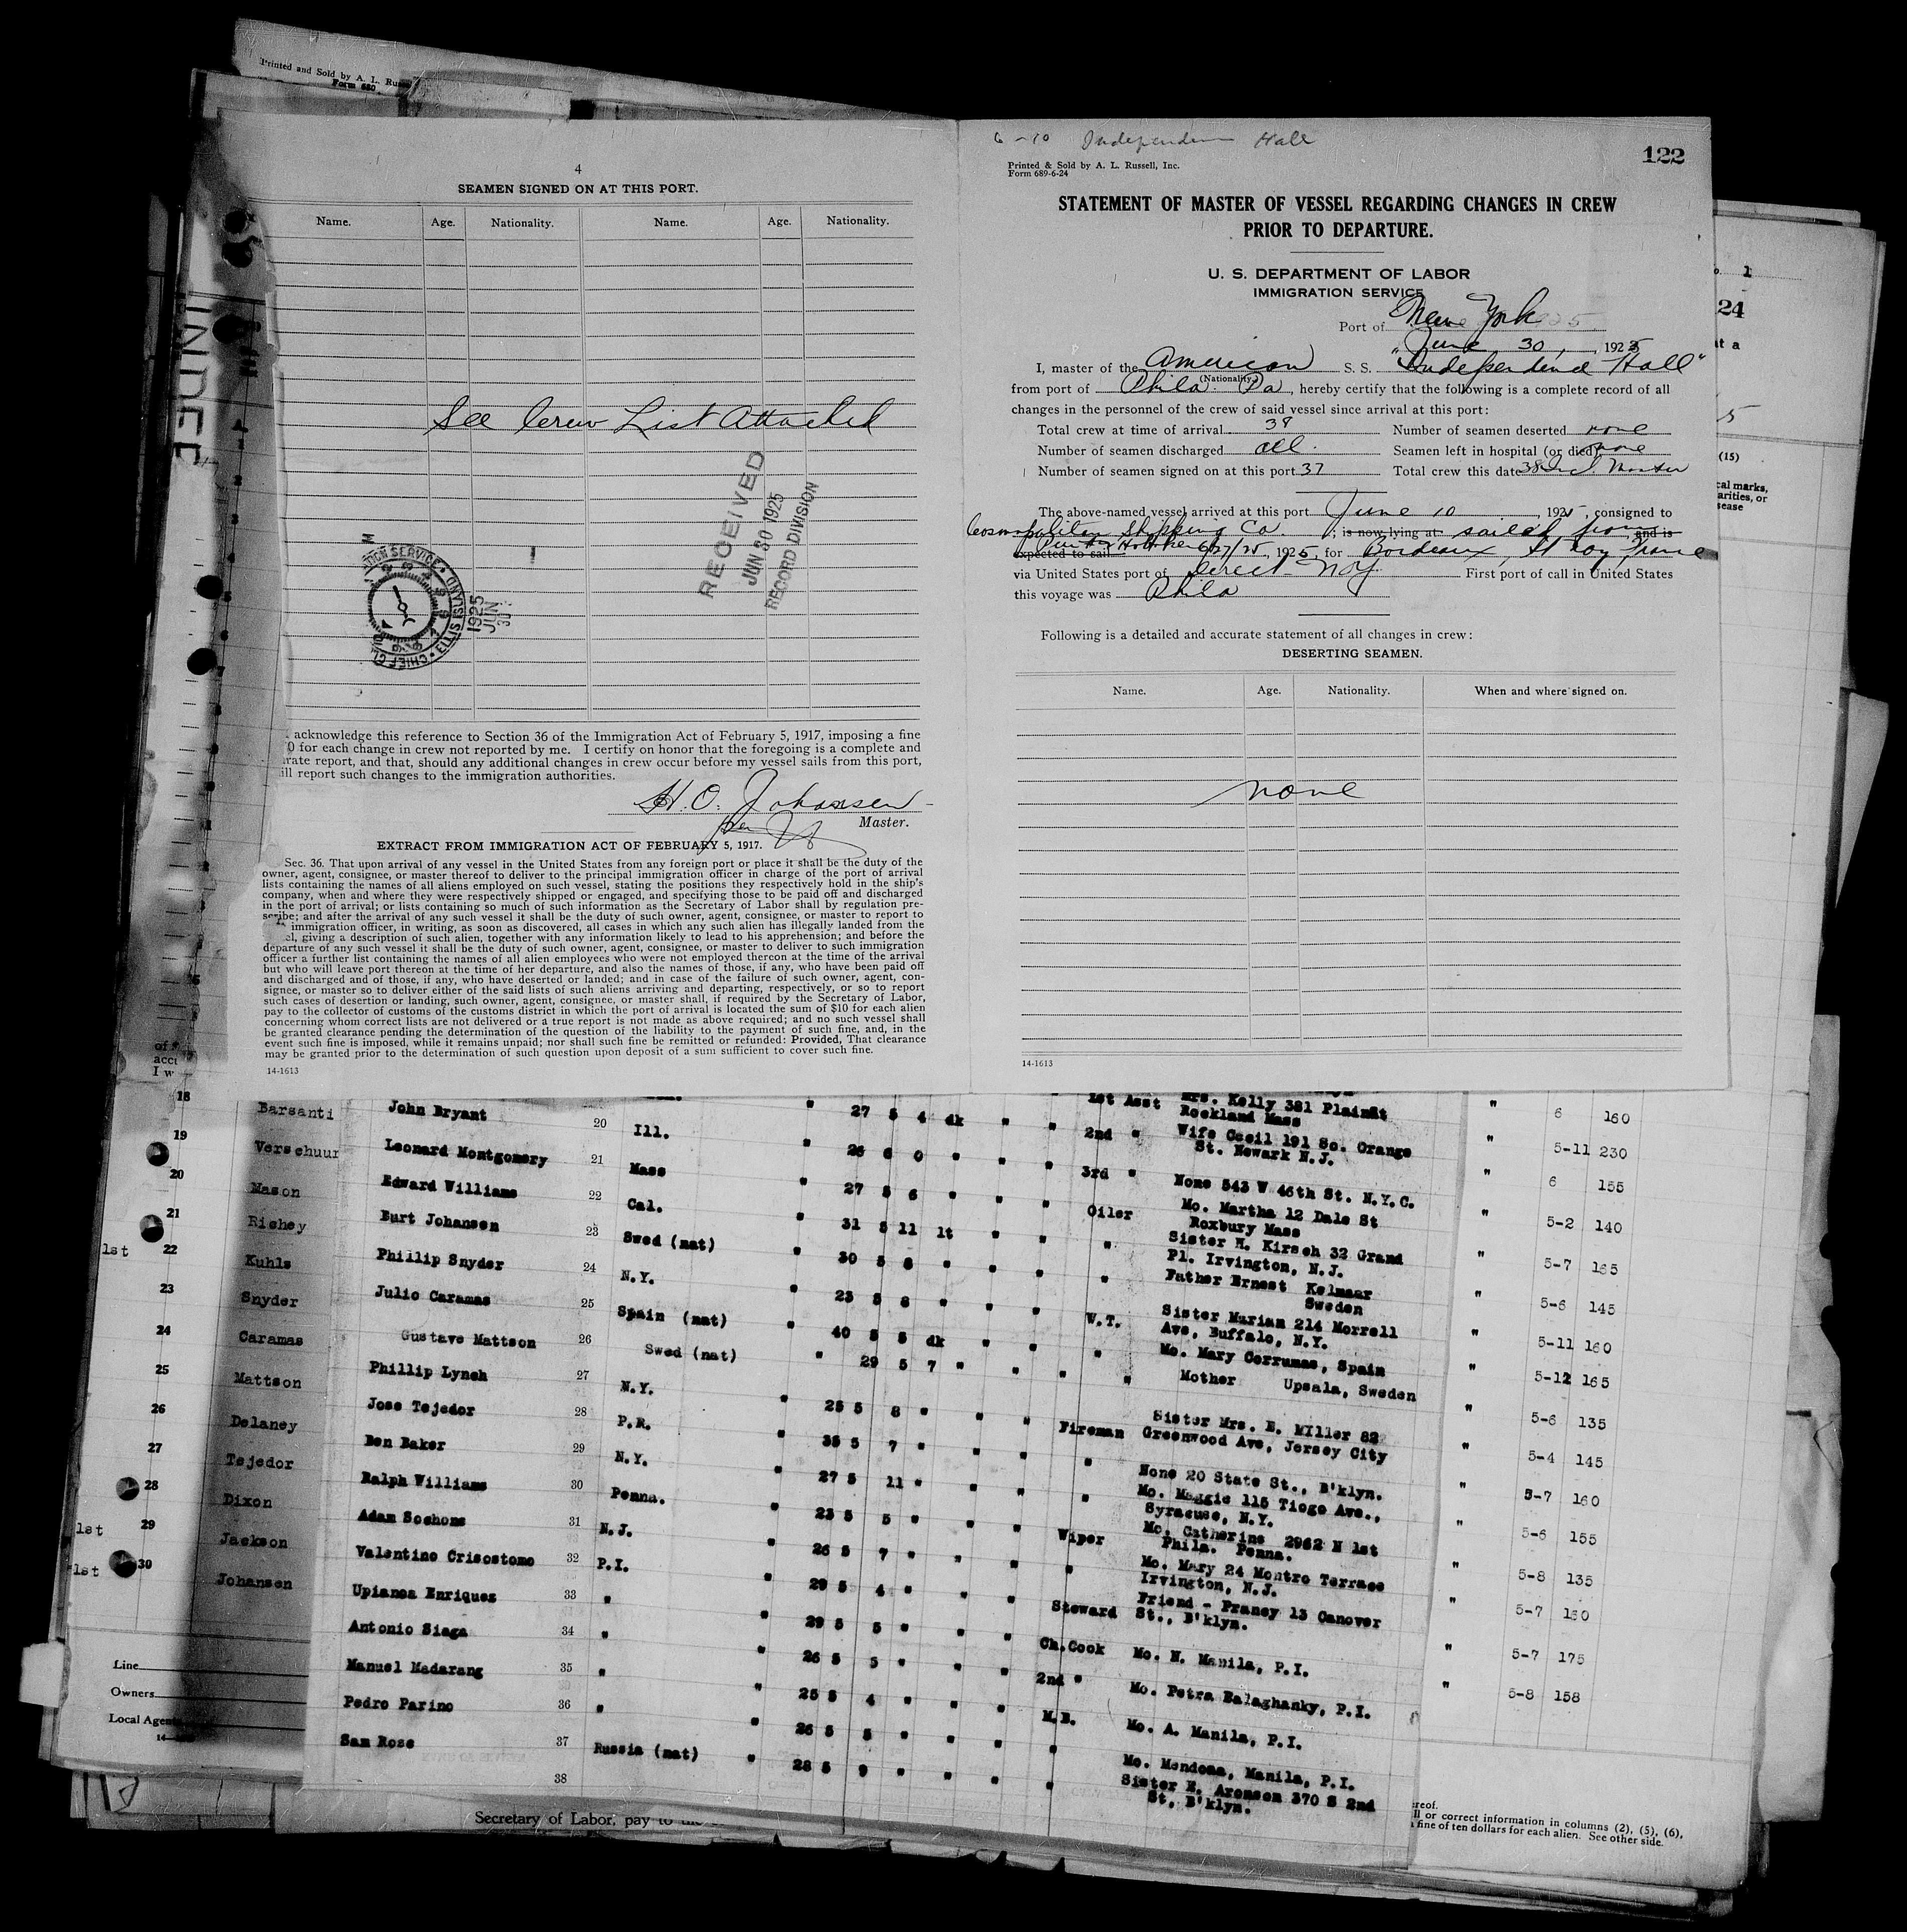 Printed and Sold by A. L. Rus
Form 680
4
SEAMEN SIGNED ON AT THIS PORT.
Name. Age. Nationality. Name. Age. Nationality.
See Crew List Attached
RECEIVED
JUN 30 1925
RECORD DIVISION
ELLIS ISLAND
1925
JUN
30
acknowledge this reference to Section 36 of the Immigration Act of February 5, 1917, imposing a fine
0 for each change in crew not reported by me. I certify on honor that the foregoing is a complete and
rate report, and that, should any additional changes in crew occur before my vessel sails from this port,
ill report such changes to the immigration authorities.
H. O. Johansen
Master.
EXTRACT FROM IMMIGRATION ACT OF FEBRUARY 5, 1917.
Sec. 36. That upon arrival of any vessel in the United States from any foreign port or place it shall be the duty of the
owner, agent, consignee, or master thereof to deliver to the principal immigration officer in charge of the port of arrival
lists containing the names of all aliens employed on such vessel, stating the positions they respectively hold in the ship's
company, when and where they were respectively shipped or engaged, and specifying those to be paid off and discharged
in the port of arrival; or lists containing so much of such information as the Secretary of Labor shall by regulation pre-
scribe; and after the arrival of any such vessel it shall be the duty of such owner, agent, consignee, or master to report to
immigration officer, in writing, as soon as discovered, all cases in which any such alien has illegally landed from the
el, giving a description of such alien, together with any information likely to lead to his apprehension; and before the
departure of any such vessel it shall be the duty of such owner, agent, consignee, or master to deliver to such immigration
officer a further list containing the names of all alien employees who were not employed thereon at the time of the arrival
but who will leave port thereon at the time of her departure, and also the names of those, if any, who have been paid off
and discharged and of those, if any, who have deserted or landed; and in case of the failure of such owner, agent, con-
signee, or master so to deliver either of the said lists of such aliens arriving and departing, respectively, or so to report
such cases of desertion or landing, such owner, agent, consignee, or master shall, if required by the Secretary of Labor,
pay to the collector of customs of the customs district in which the port of arrival is located the sum of $10 for each alien
concerning whom correct lists are not delivered or a true report is not made as above required; and no such vessel shall
be granted clearance pending the determination of the question of the liability to the payment of such fine, and, in the
event such fine is imposed, while it remains unpaid; nor shall such fine be remitted or refunded: Provided, That clearance
may be granted prior to the determination of such question upon deposit of a sum sufficient to cover such fine.
14-1613
6-10 Independence Hall
122
Printed & Sold by A. L. Russell, Inc.
Form 689-6-24
STATEMENT OF MASTER OF VESSEL REGARDING CHANGES IN CREW
PRIOR TO DEPARTURE.
U. S. DEPARTMENT OF LABOR
IMMIGRATION SERVICE
Port of New York
June 30, 1925
I, master of the American S. S. "Independence Hall"
(Nationality)
from port of Phila Pa, hereby certify that the following is a complete record of all
changes in the personnel of the crew of said vessel since arrival at this port:
Total crew at time of arrival 38 Number of seamen deserted none
Number of seamen discharged all. Seamen left in hospital (or died) none
Number of seamen signed on at this port 37 Total crew this date 38 Incl. Master
The above-named vessel arrived at this port June 10, 1925, consigned to
Cosmopolitan Shipping Co.; is now lying at sailed from, and is
expected to sail Hoboken 6/27/25, 1925, for Bordeaux, St Naz, France
via United States port of Direct - N.Y. First port of call in United States
this voyage was Phila
Following is a detailed and accurate statement of all changes in crew:
DESERTING SEAMEN.
Name. Age. Nationality. When and where signed on.
none
14-1613
24
(15)
cal marks,
arities, or
sease
18 Barsanti John Bryant 20 Ill. " 27 5 4 dk " " 1st Asst Mrs. Kelly 381 Plainfit " 6 160
Rockland Mass
19 Verschuur Leonard Montgomery 21 Mass " 26 6 0 " " " 2nd " Wife Cecil 191 So. Orange " 5-11 230
St. Newark N.J.
20 Mason Edward Williams 22 Cal. " 27 5 6 " " " 3rd " None 543 W 46th St. N.Y.C. " 6 155
21 Richey Burt Johansen 23 Swed (nat) " 31 5 11 lt " " Oiler Mo. Martha 12 Dale St " 5-2 140
Roxbury Mass
1st 22 Kuhls Phillip Snyder 24 N.Y. " 30 5 8 " " " " Sister H. Kirsch 32 Grand " 5-7 165
Pl. Irvington, N.J.
23 Snyder Julio Caramas 25 Spain (nat) " 23 5 8 " " " " Father Ernest Kelmaar " 5-6 145
Sweden
24 Caramas Gustave Mattson 26 Swed (nat) " 40 5 5 dk " " W.T. Sister Marian 214 Morrell " 5-11 160
Ave, Buffalo, N.Y.
25 Mattson Phillip Lynch 27 N.Y. " 29 5 7 " " " " Mo. Mary Corrumas, Spain " 5-12 165
Mother Upsala, Sweden
26 Delaney Jose Tejedor 28 P.R. " 25 5 8 " " " Fireman Sister Mrs. E. Miller 82 " 5-6 135
Greenwood Ave, Jersey City
27 Tejedor Ben Baker 29 N.Y. " 35 5 7 " " " " None 20 State St., B'klyn. " 5-4 145
28 Dixon Ralph Williams 30 Penna. " 27 5 11 " " " " Mo. Maggie 115 Tioge Ave., " 5-7 160
Syracuse, N.Y.
1st 29 Jackson Adam Sochons 31 N.J. " 23 5 5 " " " Wiper Mo. Catherine 2962 N 1st " 5-6 155
Phila. Penna.
1st 30 Johansen Valentino Crisostomo 32 P.I. " 26 5 7 " " " " Mo. Mary 24 Montro Terrace " 5-8 135
Irvington, N.J.
Upianea Enriquez 33 " " 29 5 4 " " " Steward Friend - Praney 13 Canover " 5-7 150
St., B'klyn.
Antonio Siaga 34 " " 29 5 5 " " " Ch. Cook Mo. N. Manila, P.I. " 5-7 175
Manuel Madarang 35 " " 26 5 5 " " " 2nd " Mo. Petra Balaghanky, P.I. " 5-8 158
Pedro Parino 36 " " 25 5 4 " " " M.B. Mo. A. Manila, P.I.
Sam Rose 37 Russia (nat) " 26 5 5 " " " " Mo. Mendoza, Manila, P.I.
38 28 5 9 " " " " Sister E. Aronson 370 S 2nd
St, B'klyn.
Line
Owners
Local Agen
Secretary of Labor, pay to the
ereof.
ll or correct information in columns (2), (5), (6),
fine of ten dollars for each alien. See other side.